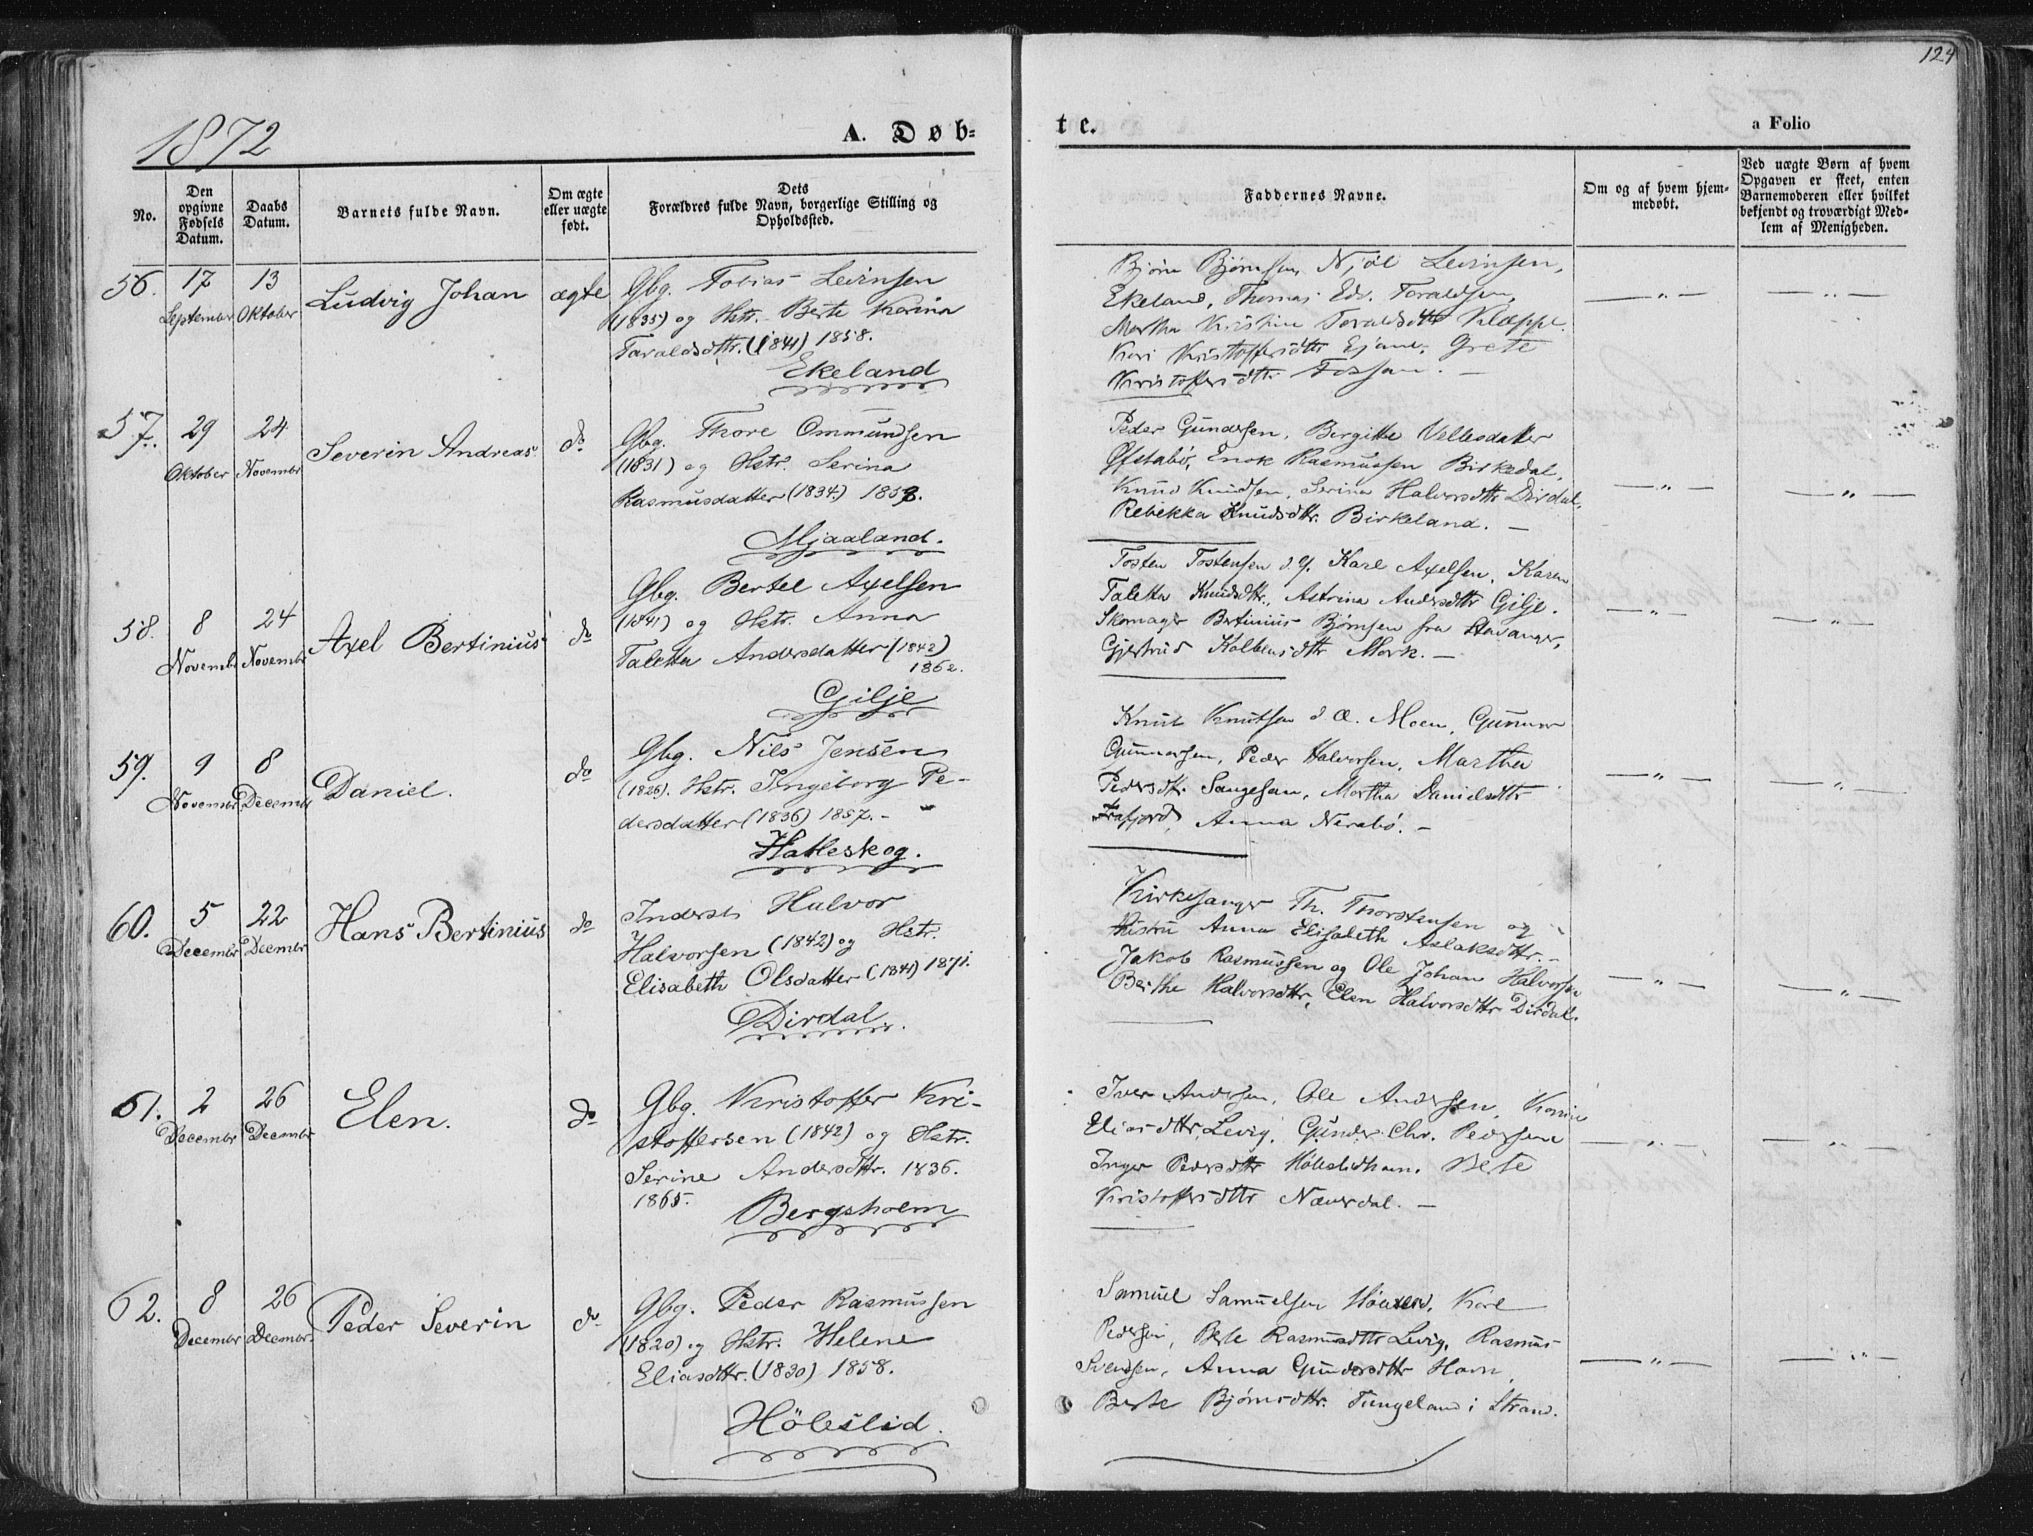 124
1872
A. Døb=
te.
a Folio
No.
Den
opgivne
Fødsels
Datum.
Daabs
Datum.
Barnets fulde Navn.
Om ægte
eller uægte
født.
Dets
Forældres fulde Navn, borgerlige Stilling og
Opholdssted.
Faddernes Navne.
Om og af hvem hjem-
medøbt.
Ved uægte Børn af hvem
Opgaven er skeet, enten
Barnemoderen eller hvilket
bekjendt og troværdigt Med-
lem af Menigheden.
56.
17
September
13
Oktober
Ludvig Johan
ægte
Gbg. Tobias Levinsen
(1835) og Hstr. Berte Karina
Taraldsdttr. (1841) 1858.
Ekeland
Bjørn Bjørnsen, Njöl Levinsen,
Ekeland, Thomas Edv. Taraldsen,
Martha Kristine Taraldsdttr Klæppe.
Kari Kristoffersdttr Ejane, Grete
Kristoffersdttr Fossan. —
— " —
— " —
57.
29
Oktober
24
Novembr
Severin Andreas
do
Gbg. Thore Ommundsen
(1831) og Hstr. Serina
Rasmusdatter (1834) 1858.
Mjaaland.
Peder Gundersen, Bergitte Vellesdatter
Øfstabö, Enok Rasmussen Birkedal,
Knud Knudsen, Serina Halvorsdttr Dirdal,
Rebekka Knudsdttr. Birkeland. —
— " —
— " —
58.
8
Novembr
24
Novembr
Axel Bertinius
do
Gbg. Bertel Axelsen
(1841) og Hstr. Anna
Taletta Andersdatter (1842)
1862.
Gilje
Tosten Tostensen d. y. Karl Axelsen, Karen
Taletta Knudsdtr., Astrina Andersdttr Gilje.
Skomager Bertinius Bjørnsen fra Stavanger,
Gjertrud Kolbensdttr Mork. —
— " —
— " —
59.
9
Novembr
8
Decembr
Daniel.
do
Gbg. Nils Jensen
(1826). Hstr. Ingeborg Pe-
dersdatter (1836) 1857. -
Hatleskog.
Knut Knutsen d. Æ. Moen, Gunnar
Gunnarsen, Peder Halvorsen, Martha
Pedersdtr. Saugesan, Martha Danielsdttr
Frafjord, Anna Nerabö. —
— " —
— " —
60.
5
Decembr
22
Decembr
Hans Bertinius
do
Inderst Halvor
Halvorsen (1842) og Hstr.
Elisabeth Olsdatter (1841) 1871.
Dirdal.
Kirkesanger Th. Thorstensen og
Hustru Anna Elisabeth Aslaksdttr. -
Jakob Rasmussen og Ole Johan Halvorsen
Berthe Halvorsdttr, Elen Halvorsdttr Dirdal.
— " —
— " —
61.
2
Decembr
26
Decembr
Elen.
do
Gbg. Kristoffer Kri-
stoffersen (1842) og Hstr.
Serine Andersdttr. 1836.
1865.
Bergsholm
Iver Andersen, Ole Andersen, Karine
Eliasdttr, Levig, Gunder Chr. Pedersen
Inger Pedersdttr Höleslidham, Berte
Kristoffersdttr Næverdal. —
— " —
— " —
62.
8
Decembr
26
Decembr.
Peder Severin
do
Gbg. Peder Rasmussen
(1820) og Hstr. Helene
Eliasdttr. (1830) 1858.
Höleslid.
Samuel Samuelsen Höllesl, Karl
Pedersen, Berte Rasmusdttr Levig, Rasmus
Svendsen, Anna Gundersdttr Havn,
Berte Bjørnsdttr. Tungeland i Strand.
— " —
— " —